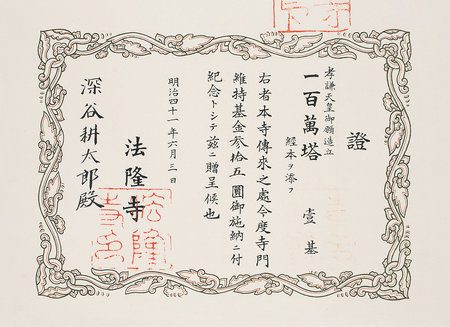 證
孝謙天皇御願造立
一百萬塔 壹基
經本ヲ添フ
右者本寺傳來之處今度寺門
維持基金參拾五圓御施納ニ付
紀念トシテ茲ニ贈呈候也
明治四十一年六月三日
法隆寺
深谷耕太郎殿
法隆寺印